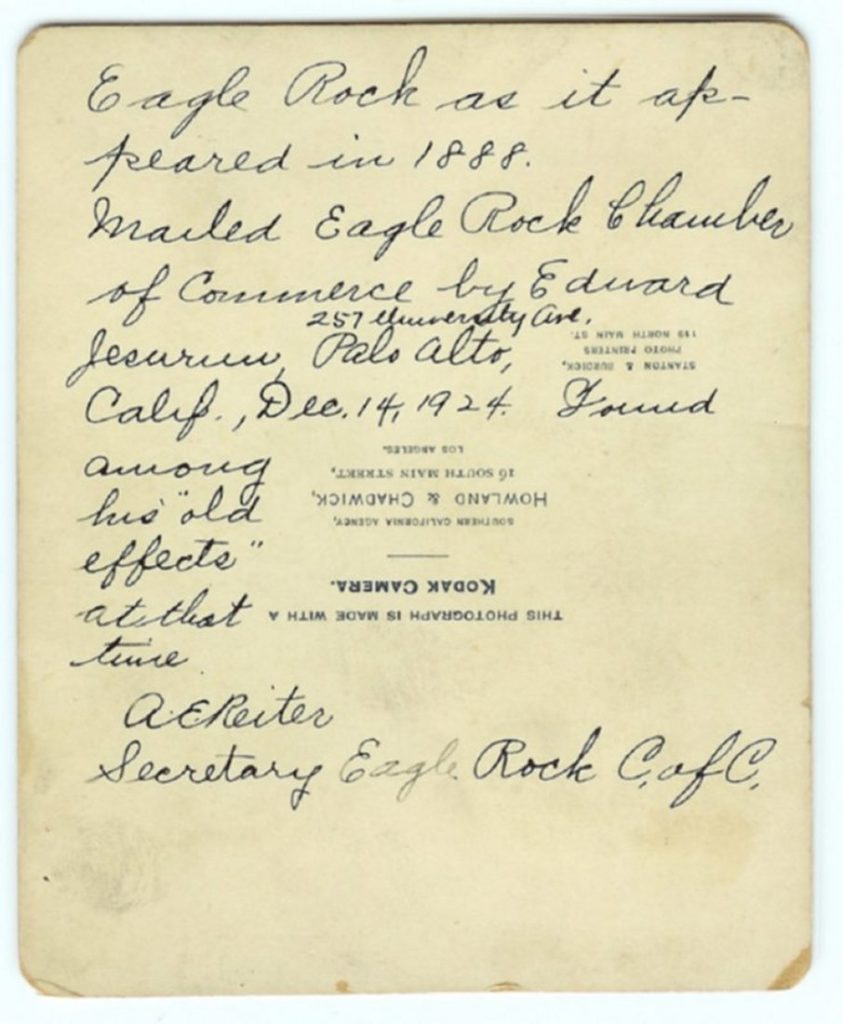 Eagle Rock as it ap-
peared in 1888.
Mailed Eagle Rock Chamber
of Commerce by Edward
257 University Ave.
Jesurun, Palo Alto,
Calif., Dec. 14, 1924. Found
among
his "old
effects"
at that
time
A E Reiter
Secretary Eagle Rock C. of C.
THIS PHOTOGRAPH IS MADE WITH A
KODAK CAMERA.
SOUTHERN CALIFORNIA AGENCY,
HOWLAND & CHADWICK,
16 SOUTH MAIN STREET,
LOS ANGELES.
STANTON & BURDICK,
PHOTO PRINTERS
119 NORTH MAIN ST.